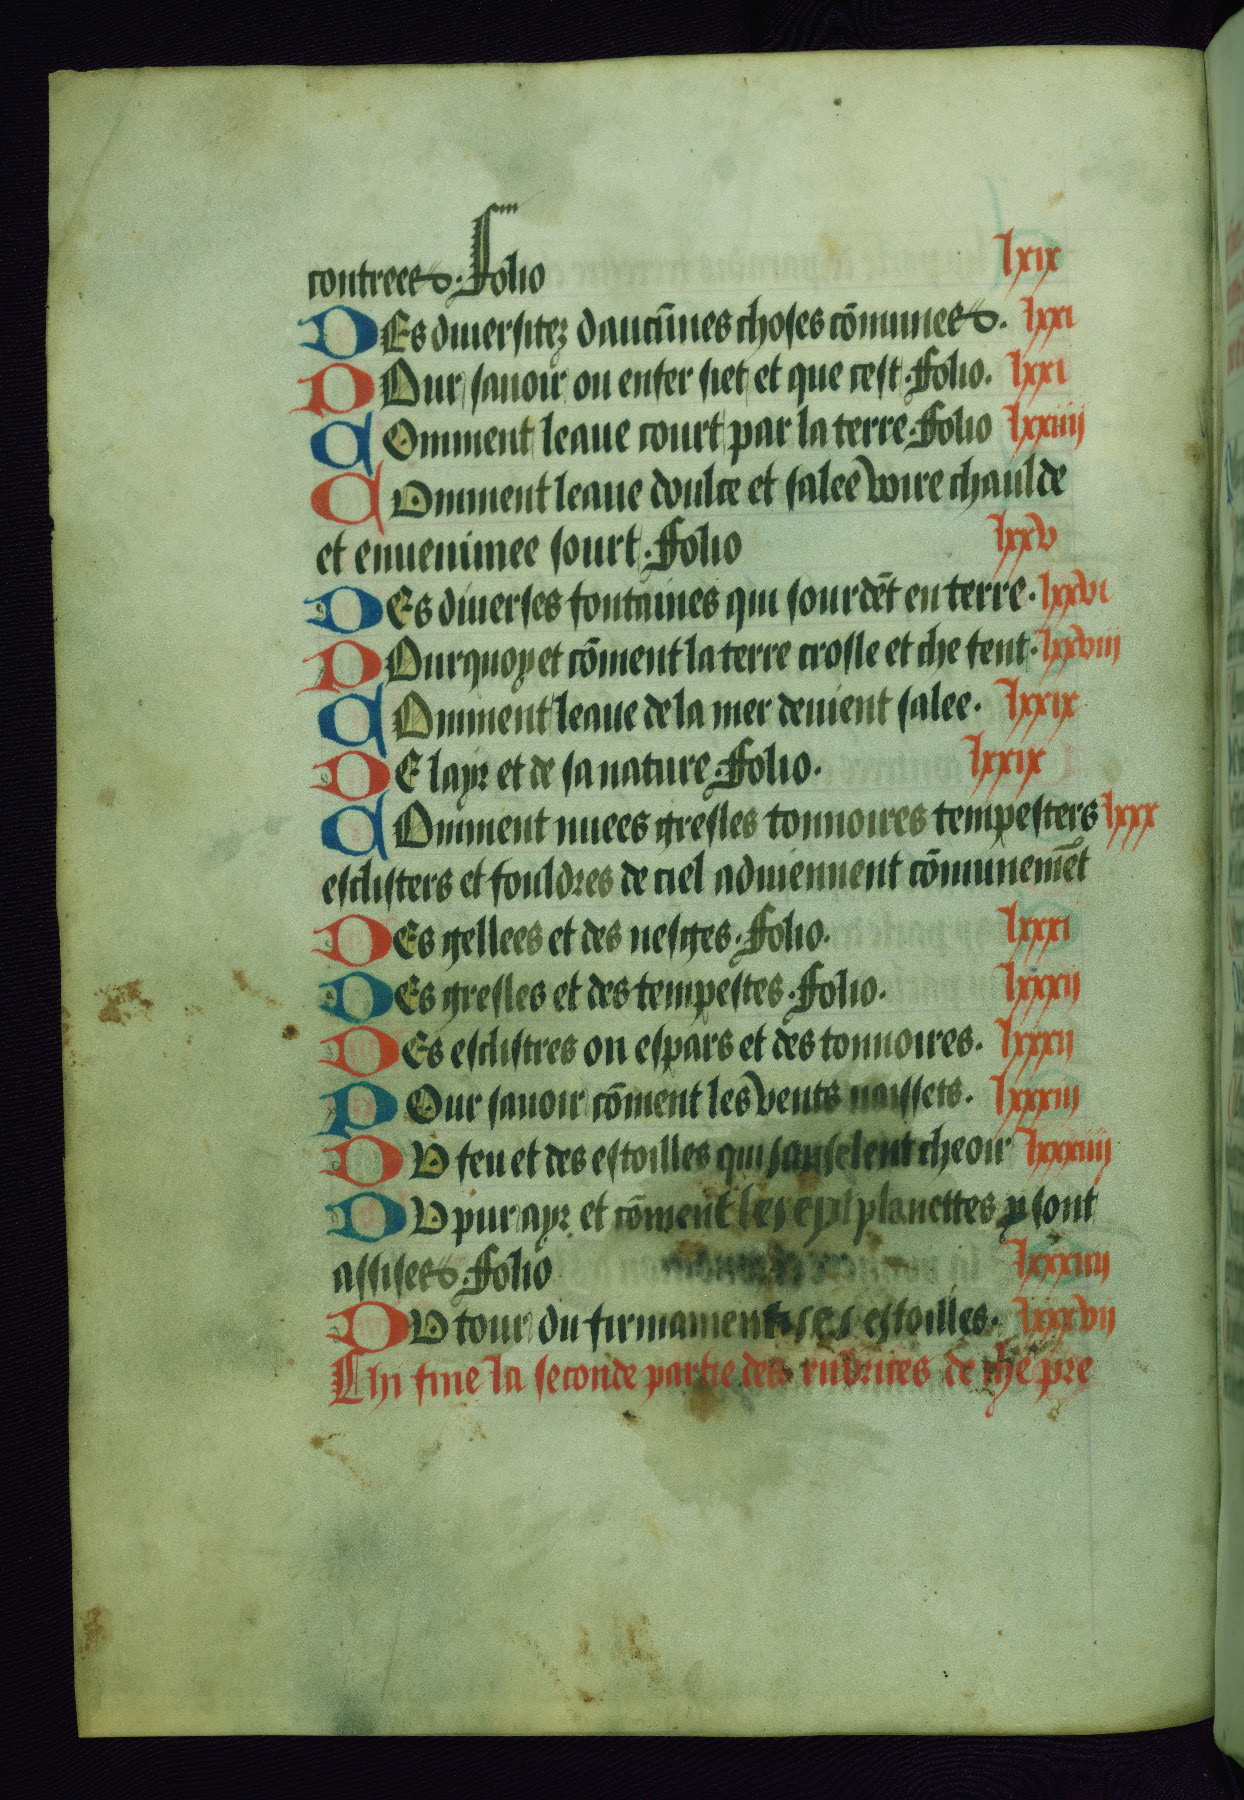 contrees. Folio lxix
DEs diuersitez daucu̅nes choses co̅munes. lxxi
POur sauoir ou enfer siet et que cest. Folio. lxxi
COmment leaue court par la terre. Folio lxxiiii
COmment leaue doulce et salee voire chaulde
et enuenimee sourt. Folio lxxv
DEs diuerses fontaines qui sourde̅t en terre. lxxvi
POurquoy et co̅ment la terre crosle et che fent. lxxviii
COmment leaue de la mer deuient salee. lxxix
DE layr et de sa nature. Folio. lxxix
COmment nuees gresles tonnoires tempesters lxxx
esclisters et fouldres de ciel aduiennent co̅muneme̅t
DEs gellees et des nesges. Folio. lxxxi
DEs gresles et des tempestes. Folio. lxxxii
DEs esclistres ou espars et des tonnoires. lxxxii
POur sauoir co̅ment les vents naissets. lxxxiii
DU feu et des estoilles qui sanselent cheoir lxxxiiii
DU pur ayr et co̅ment les planettes y sont
assises. Folio lxxxiiii
DU tour du firmament ses estoilles. lxxxvii
Chi fine la seconde partie des rubrices de che pre